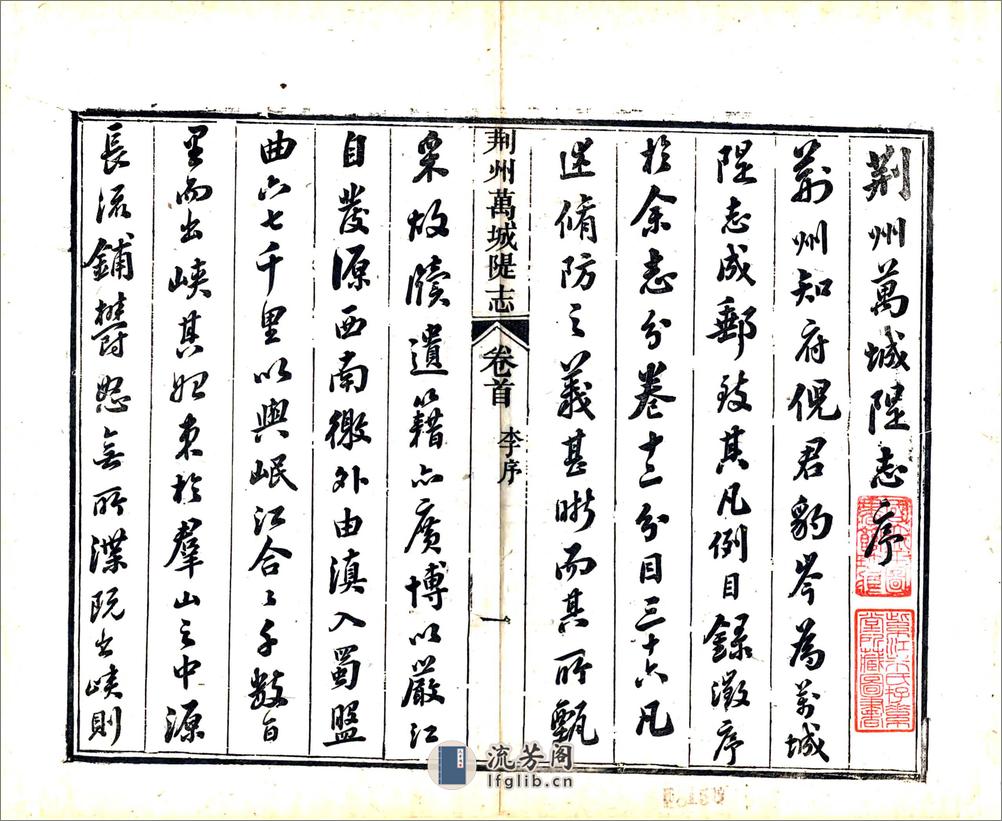 荆州萬城隄志序
荊州知府倪君豹岑為萬城
隄志成郵致其凡例目録徵序
於余志分卷十二分目三十六凡
述脩防之義甚晰而其所甄
荆州萬城隄志
卷首
李序
一
案牘遺籍亦廣博以嚴江
自發源西南徼外由滇入蜀盤
曲六七千里以與岷江合又千數百
里而出峽其始束於羣山之中源
長流鋪鬱怒無所渫既出峽則
流芳阁
lfglib.cn